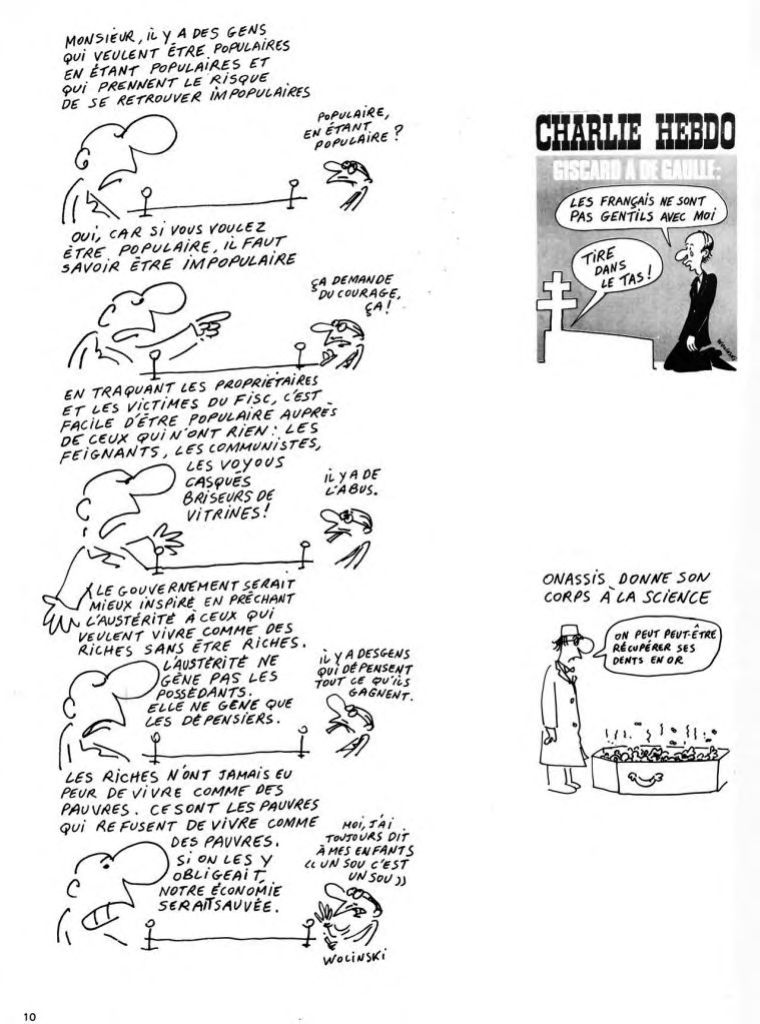 MONSIEUR, IL Y A DES GENS
QUI VEULENT ÊTRE POPULAIRES
EN ÉTANT POPULAIRES ET
QUI PRENNENT LE RISQUE
DE SE RETROUVER IMPOPULAIRES
POPULAIRE,
EN ÉTANT
POPULAIRE ?
OUI, CAR SI VOUS VOULEZ
ÊTRE POPULAIRE, IL FAUT
SAVOIR ÊTRE IMPOPULAIRE
ÇA DEMANDE
DU COURAGE,
ÇA !
EN TRAQUANT LES PROPRIÉTAIRES
ET LES VICTIMES DU FISC, C'EST
FACILE D'ÊTRE POPULAIRE AUPRÈS
DE CEUX QUI N'ONT RIEN : LES
FEIGNANTS, LES COMMUNISTES,
LES VOYOUS
CASQUÉS
BRISEURS DE
VITRINES !
IL Y A DE
L'ABUS.
LE GOUVERNEMENT SERAIT
MIEUX INSPIRÉ EN PRÊCHANT
L'AUSTÉRITÉ À CEUX QUI
VEULENT VIVRE COMME DES
RICHES SANS ÊTRE RICHES.
L'AUSTÉRITÉ NE
GÊNE PAS LES
POSSÉDANTS.
ELLE NE GÊNE QUE
LES DÉPENSIERS.
IL Y A DES GENS
QUI DÉPENSENT
TOUT CE QU'ILS
GAGNENT.
LES RICHES N'ONT JAMAIS EU
PEUR DE VIVRE COMME DES
PAUVRES. CE SONT LES PAUVRES
QUI REFUSENT DE VIVRE COMME
DES PAUVRES.
SI ON LES Y
OBLIGEAIT,
NOTRE ÉCONOMIE
SERAIT SAUVÉE.
MOI, J'AI
TOUJOURS DIT
À MES ENFANTS
« UN SOU C'EST
UN SOU »
WOLINSKI
CHARLIE HEBDO
GISCARD A DE GAULLE:
LES FRANÇAIS NE SONT
PAS GENTILS AVEC MOI
TIRE
DANS
LE TAS !
WOLINSKI
ONASSIS DONNE SON
CORPS À LA SCIENCE
ON PEUT PEUT-ÊTRE
RÉCUPÉRER SES
DENTS EN OR
10